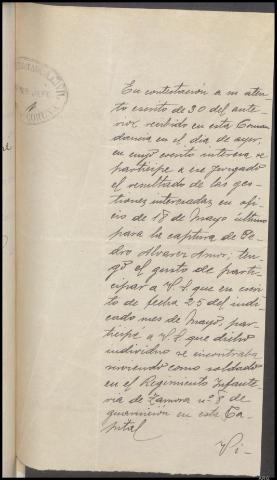 En contestación a su aten-
to escrito de 30 del ante-
rior recibido en esta Coman-
dancia en el dia de ayer,
en cuyo escrito interesa se
participe a ese Juzgado
el resultado de las ges-
tiones interesadas en ofi-
cio de 18 de Mayo último
para la captura de Pe-
dro Alvarez Amor; ten-
go el gusto de parti-
cipar a V. S. que en escri-
to de fecha 25 del indi-
cado mes de Mayo, par-
ticipé a V. S. que dicho
individuo se encontraba
sirviendo como soldado
en el Regimiento Infante-
ria de Zamora nº 8 de
guarnición en esta Ca-
pital
Vi-
CORUÑA